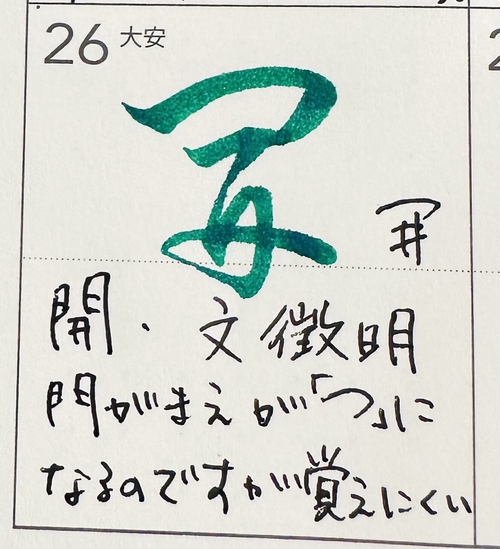 26 大安
開
井
開・文徴明
門がまえが「つ」に
なるのですが覚えにくい